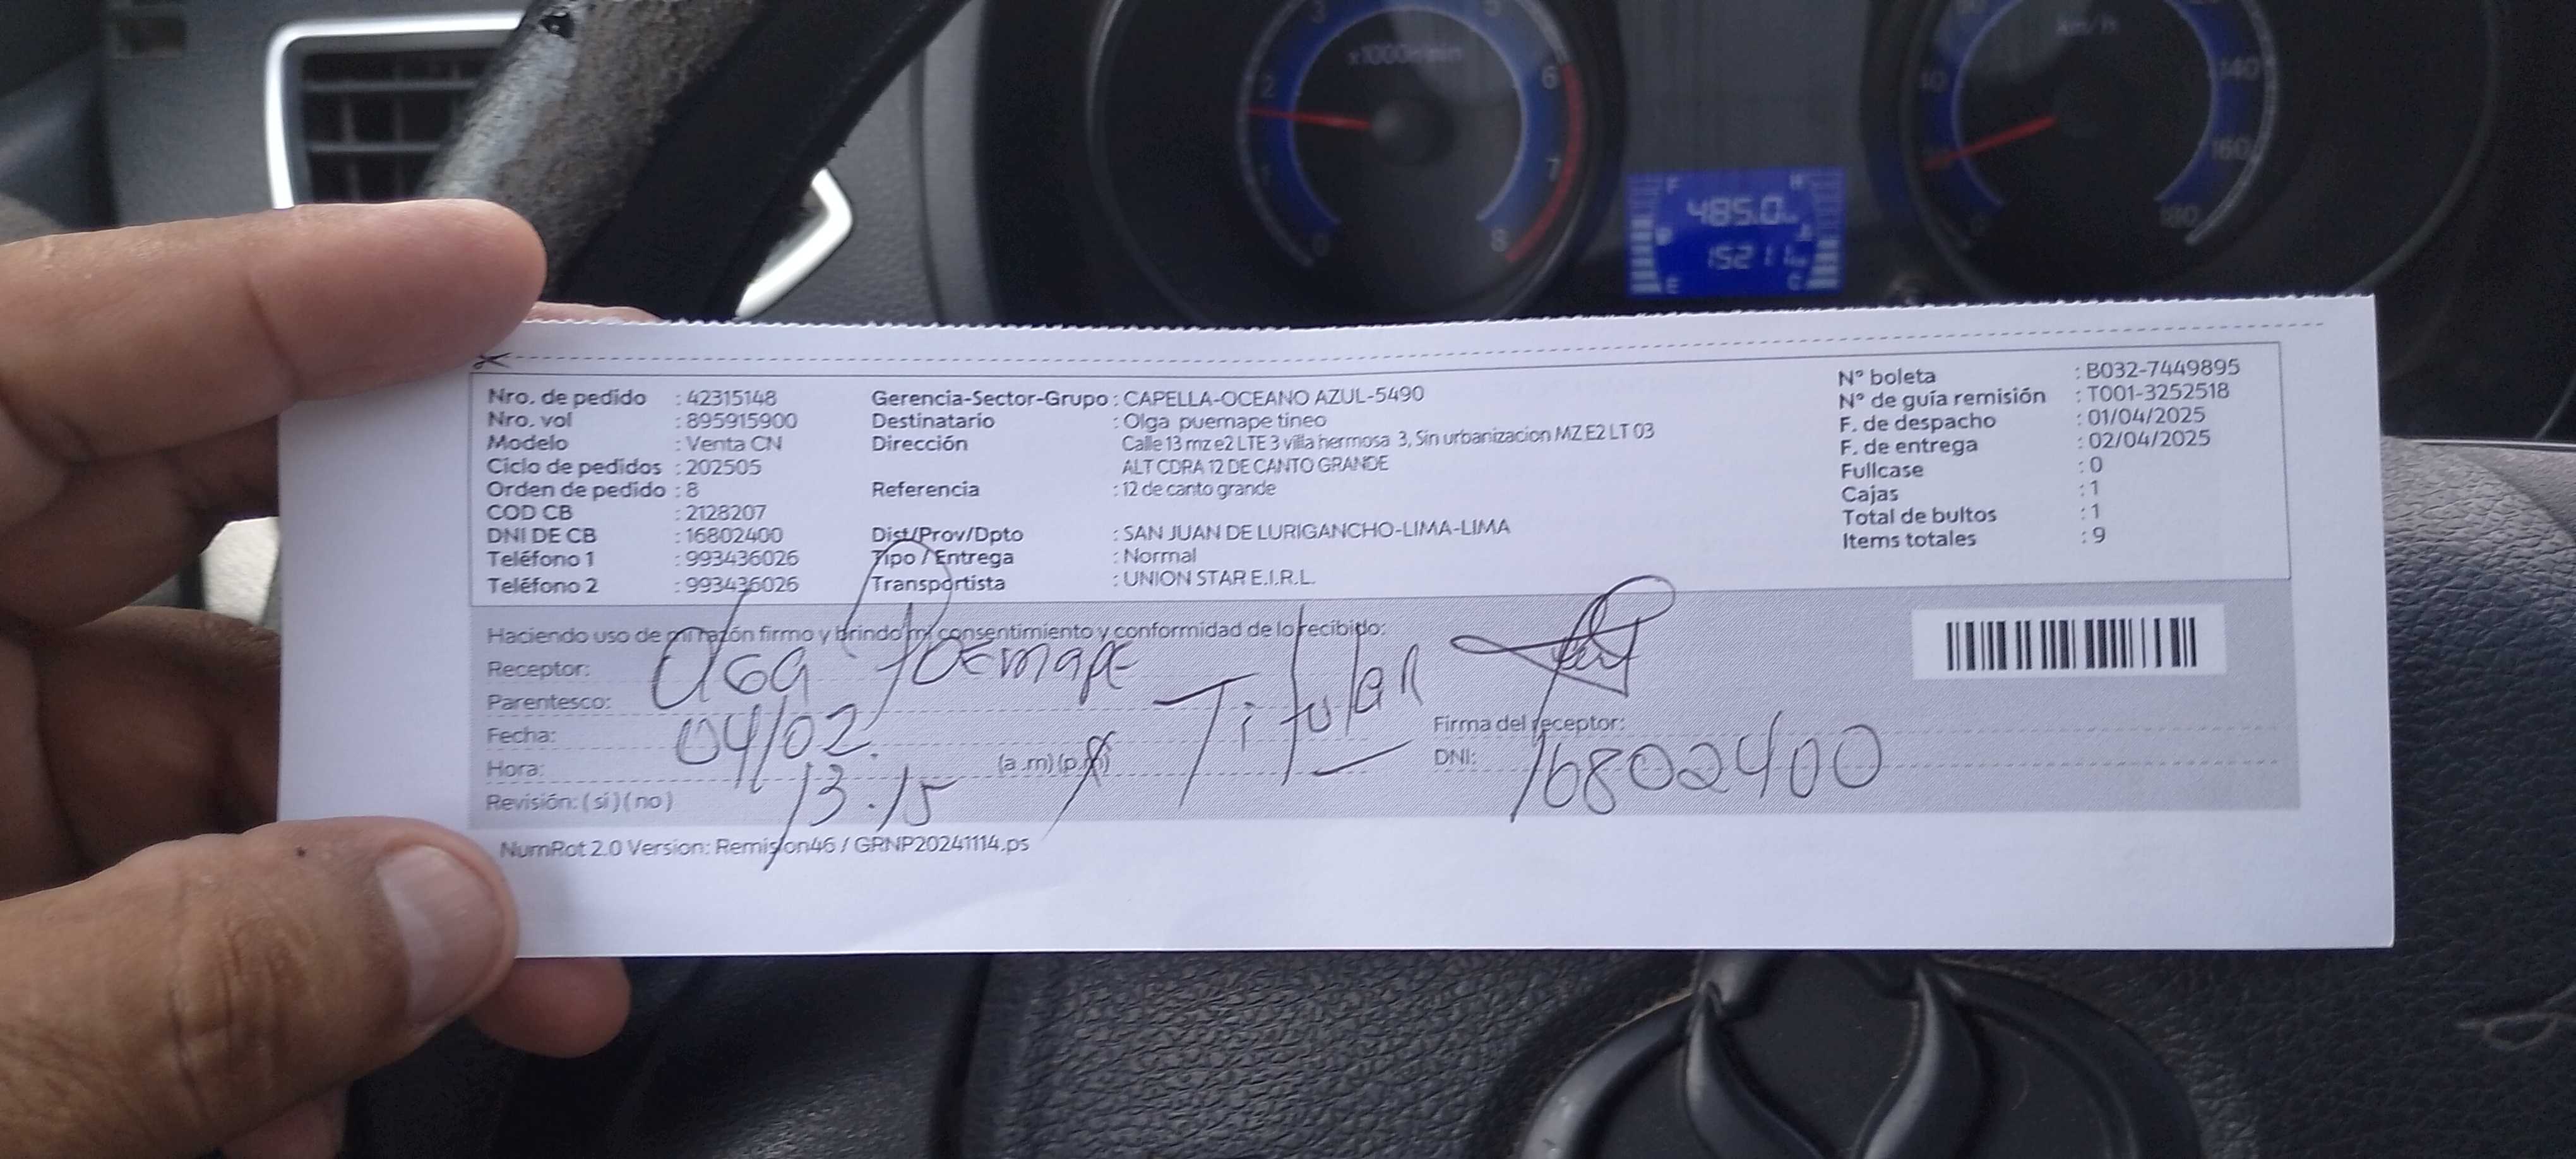 x1000r/min
km/h
2
1
0
6
7
8
140
160
180
F H
485.0
15211
E C
Nro. de pedido : 42315148
Nro. vol : 895915900
Modelo : Venta CN
Ciclo de pedidos : 202505
Orden de pedido : 8
COD CB : 2128207
DNI DE CB : 16802400
Teléfono 1 : 993436026
Teléfono 2 : 993436026
Gerencia-Sector-Grupo : CAPELLA-OCEANO AZUL-5490
Destinatario : Olga puemape tineo
Dirección Calle 13 mz e2 LTE 3 villa hermosa 3, Sin urbanizacion MZ E2 LT 03
ALT CDRA 12 DE CANTO GRANDE
Referencia : 12 de canto grande
Dist/Prov/Dpto : SAN JUAN DE LURIGANCHO-LIMA-LIMA
Tipo / Entrega : Normal
Transportista : UNION STAR E.I.R.L.
N° boleta : B032-7449895
N° de guía remisión : T001-3252518
F. de despacho : 01/04/2025
F. de entrega : 02/04/2025
Fullcase : 0
Cajas : 1
Total de bultos : 1
Items totales : 9
Haciendo uso de mi razón firmo y brindo mi consentimiento y conformidad de lo recibido:
Receptor: Olga Poemape
Parentesco: Titular
Fecha: 04/02.
Hora: 13.15 (a.m) (p.m)
Revisión: ( si ) ( no )
Firma del receptor:
DNI: 16802400
NumRot 2.0 Version: Remision46 / GRNP20241114.ps